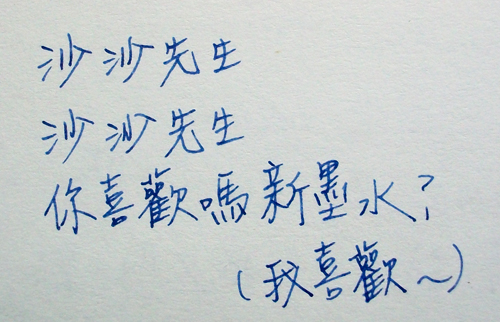 沙沙先生
沙沙先生
你喜歡嗎新墨水?
(我喜歡~)